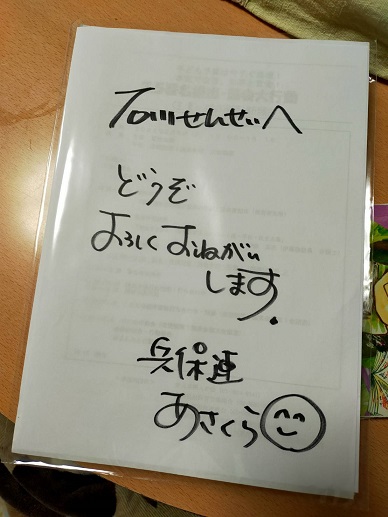 石川せんせいへ
どうぞ
よろしくおねがい
します.
兵保連
あさくら